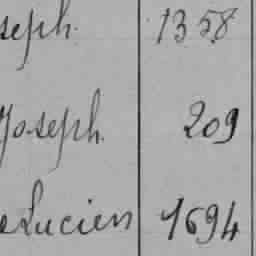 seph 1358
Joseph 209
Lucien 1694